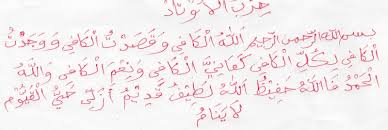 حزب الأوتاد
بسم الله الرحمن الرحيم الله الكافي وقصدت الكافي ووجدت
الكافي لكل الكافي كفاني الكافي ونعم الكافي ولله
الحمد فالله حفيظ الله لطيف قديم أزلي حي القيوم
لا ينام